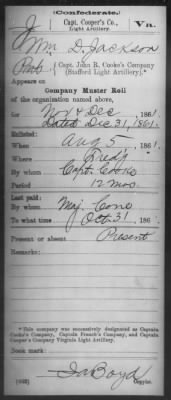 (Confederate.)
J Capt. Cooper's Co., Va.
Light Artillery.
Wm. D. Jackson
Capt. John R. Cooke's Company
(Stafford Light Artillery).*
Appears on
Company Muster Roll
of the organization named above,
for Nov & Dec, 1861.
Dated Dec 31, 1861.
Enlisted:
When Aug 5, 1861.
Where Fred'g
By whom Capt. Cooke
Period 12 mos.
Last paid:
By whom Maj. Cone
To what time Oct. 31, 186
Present or absent Present
Remarks:
*This company was successively designated as Captain
Cooke's Company, Captain French's Company, and Captain
Cooper's Company Virginia Light Artillery.
Book mark:
Boyd
Copyist.